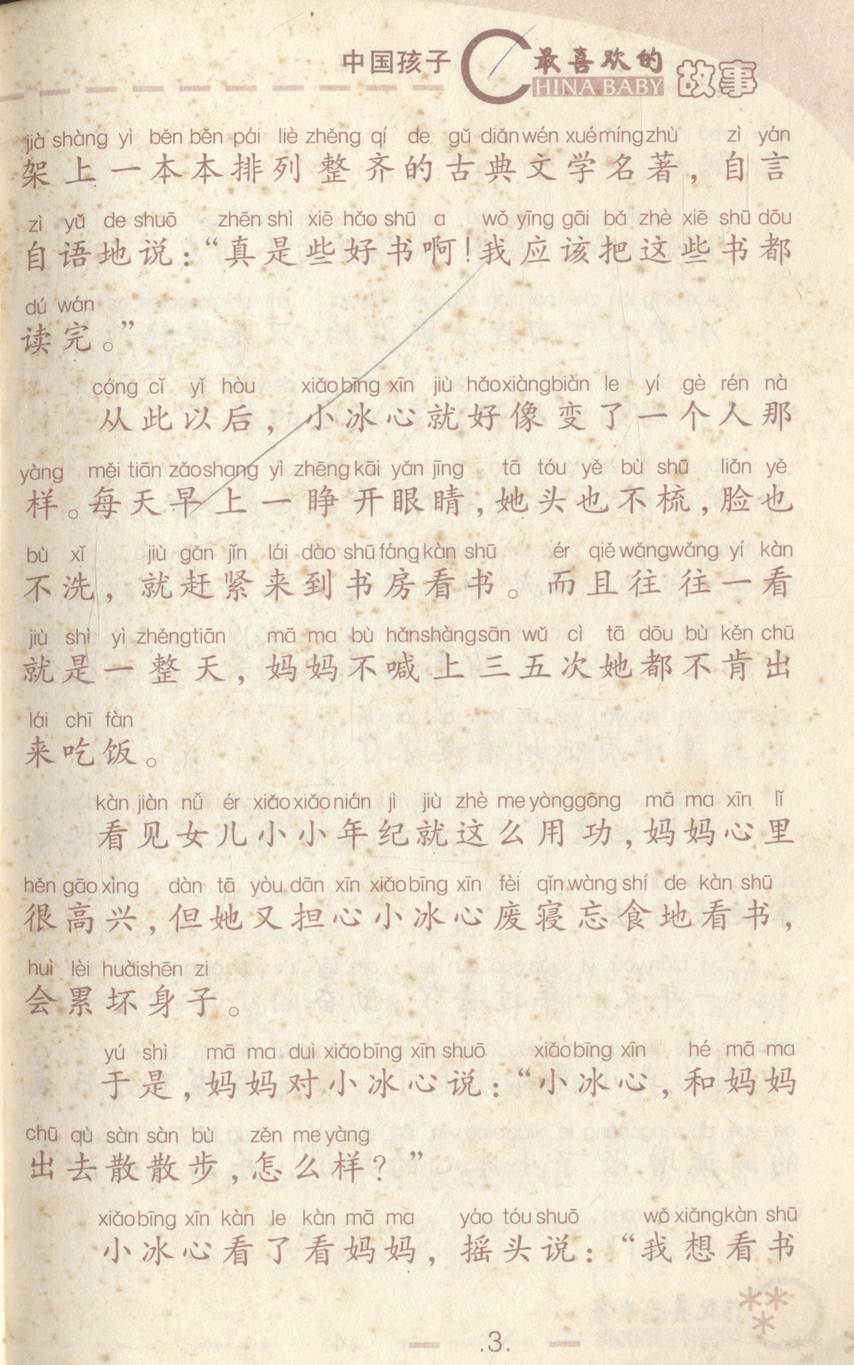 中国孩子 最喜欢的 故事
CHINA BABY
jià shàng yì běn běn pái liè zhěng qí de gǔ diǎn wén xué míng zhù zì yán
架上一本本排列整齐的古典文学名著，自言
zì yǔ de shuō zhēn shì xiē hǎo shū a wǒ yīng gāi bǎ zhè xiē shū dōu
自语地说：“真是些好书啊！我应该把这些书都
dú wán
读完。”
cóng cǐ yǐ hòu xiǎo bīng xīn jiù hǎo xiàng biàn le yí gè rén nà
从此以后，小冰心就好像变了一个人那
yàng měi tiān zǎo shang yì zhēng kāi yǎn jīng tā tóu yě bù shū liǎn yě
样。每天早上一睁开眼睛，她头也不梳，脸也
bù xǐ jiù gǎn jǐn lái dào shū fáng kàn shū ér qiě wǎng wǎng yí kàn
不洗，就赶紧来到书房看书。而且往往一看
jiù shì yì zhěng tiān mā ma bù hǎn shàng sān wǔ cì tā dōu bù kěn chū
就是一整天，妈妈不喊上三五次她都不肯出
lái chī fàn
来吃饭。
kàn jiàn nǚ ér xiǎo xiǎo nián jì jiù zhè me yòng gōng mā ma xīn lǐ
看见女儿小小年纪就这么用功，妈妈心里
hěn gāo xìng dàn tā yòu dān xīn xiǎo bīng xīn fèi qǐn wàng shí de kàn shū
很高兴，但她又担心小冰心废寝忘食地看书，
huì lèi huài shēn zi
会累坏身子。
yú shì mā ma duì xiǎo bīng xīn shuō xiǎo bīng xīn hé mā ma
于是，妈妈对小冰心说：“小冰心，和妈妈
chū qù sàn sàn bù zěn me yàng
出去散散步，怎么样？”
xiǎo bīng xīn kàn le kàn mā ma yáo tóu shuō wǒ xiǎng kàn shū
小冰心看了看妈妈，摇头说：“我想看书
.3.